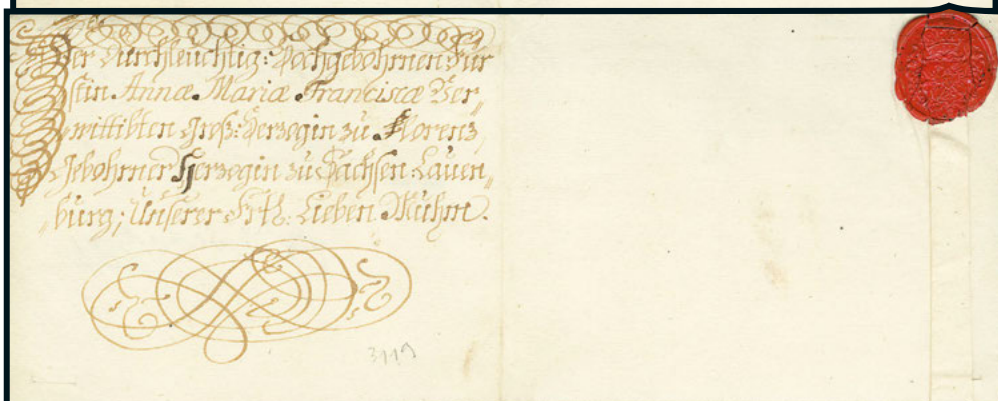 Der Durchleuchtig: Hochgebohrnen Für
stin Annæ Mariæ Franciscæ Ver„
wittibten Groß: Herzogin zu Florenz,
Gebohrner Herzogin zu Sachsen Lauen„
„burg; Unserer Frtl: Lieben Muhm.
3119